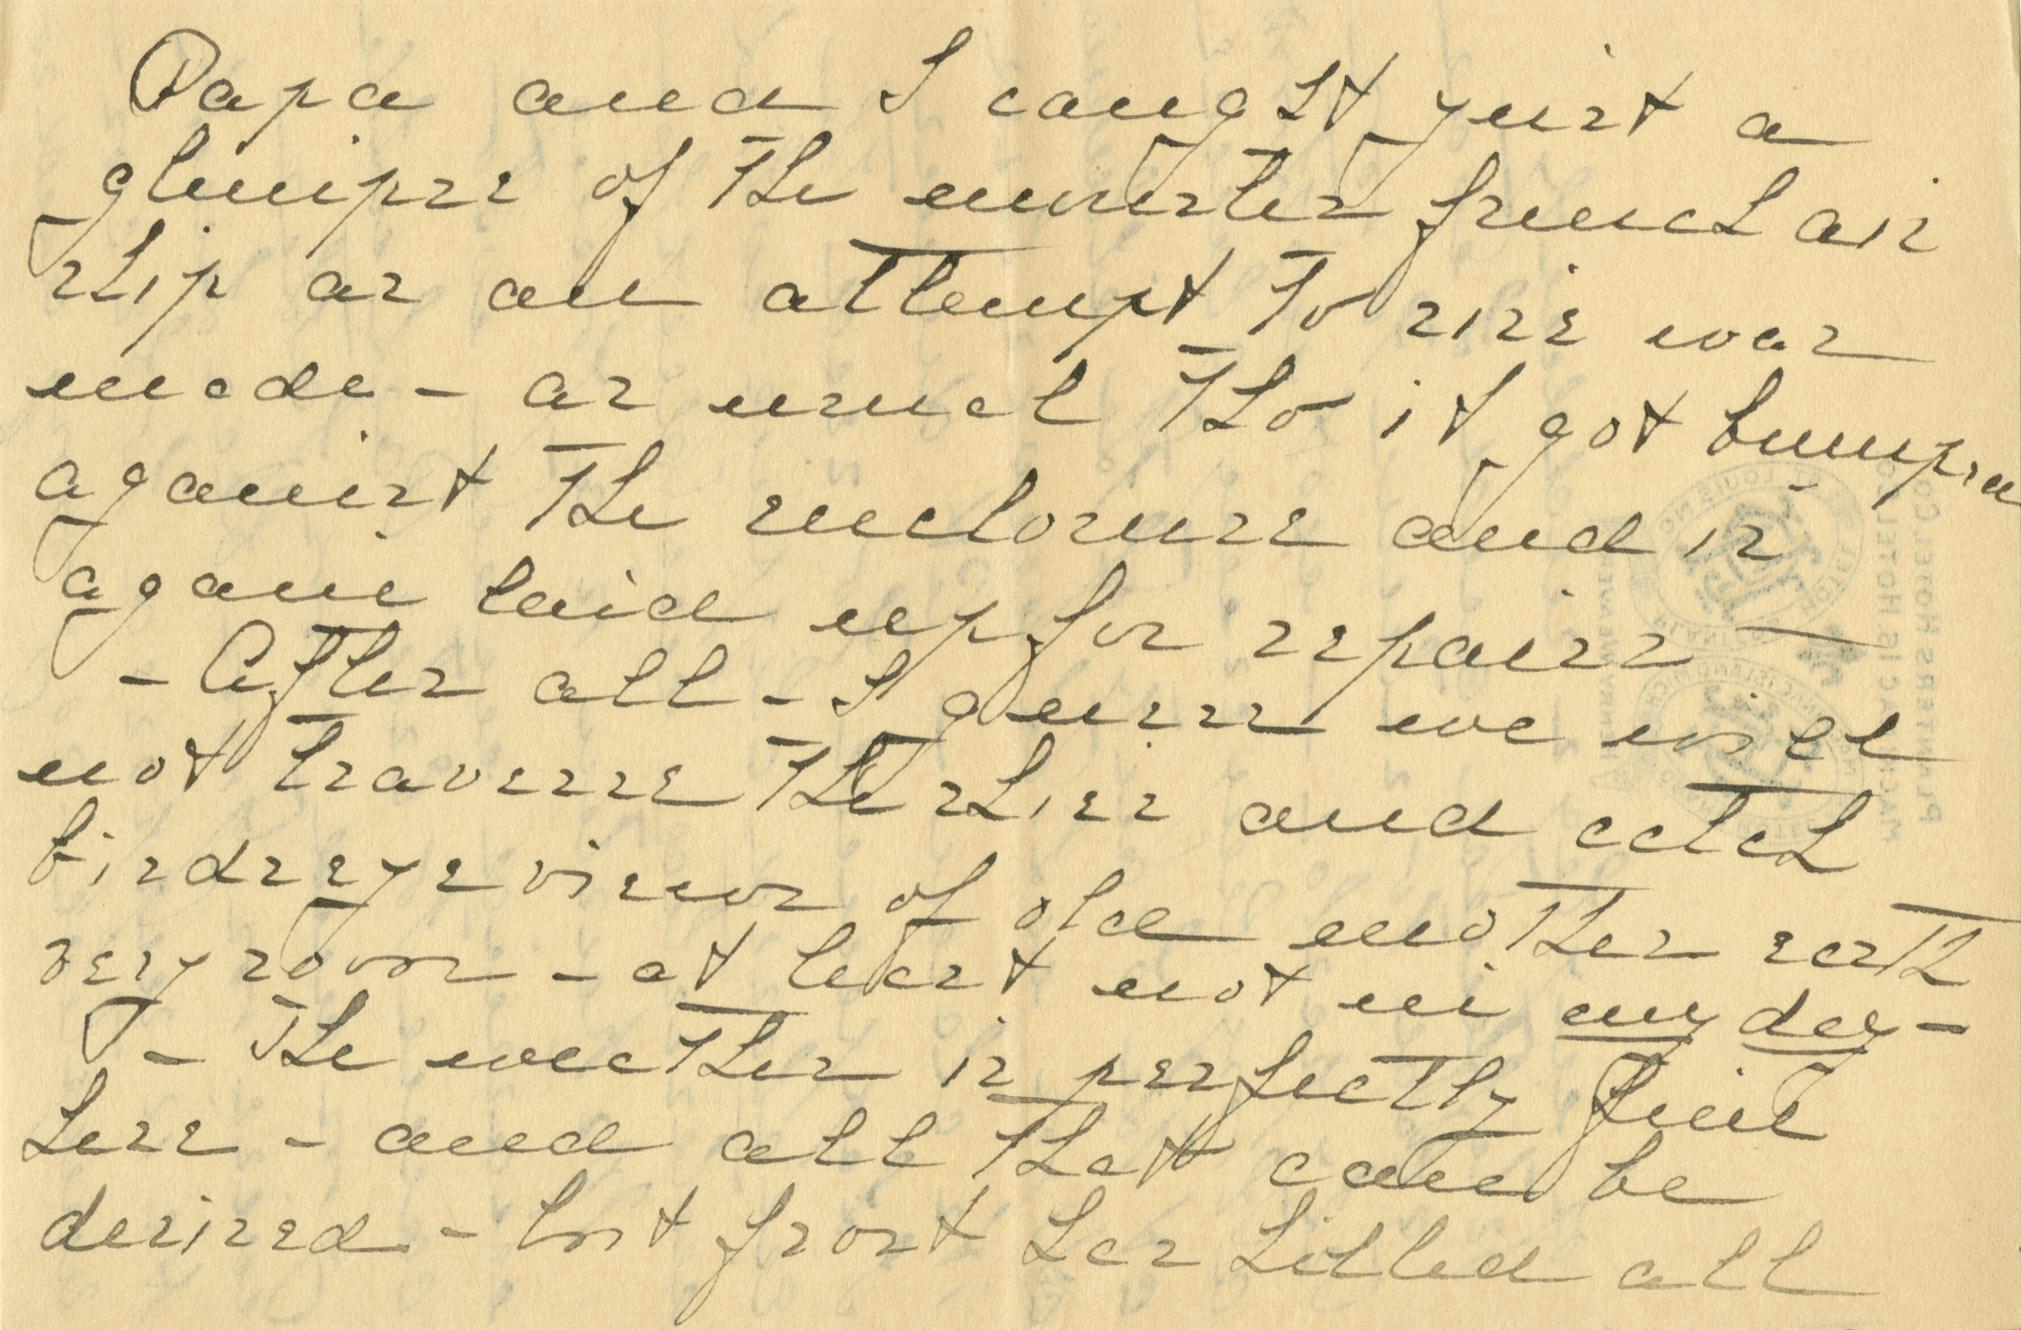 Papa and I caught just a
glimpse of the monster french air
ship as an attempt to rise was
made - as usual tho it got bumpin
against the enclosure and is
again laid up for repairs -
- After all - I guess we will
not traverse the skies and catch
birdseye views of old mother earth
very soon - at least not in my day -
- The weather is perfectly fine
here - and all that can be
desired - but frost has killed all
PLANTERS HOTEL CO.
HOTEL